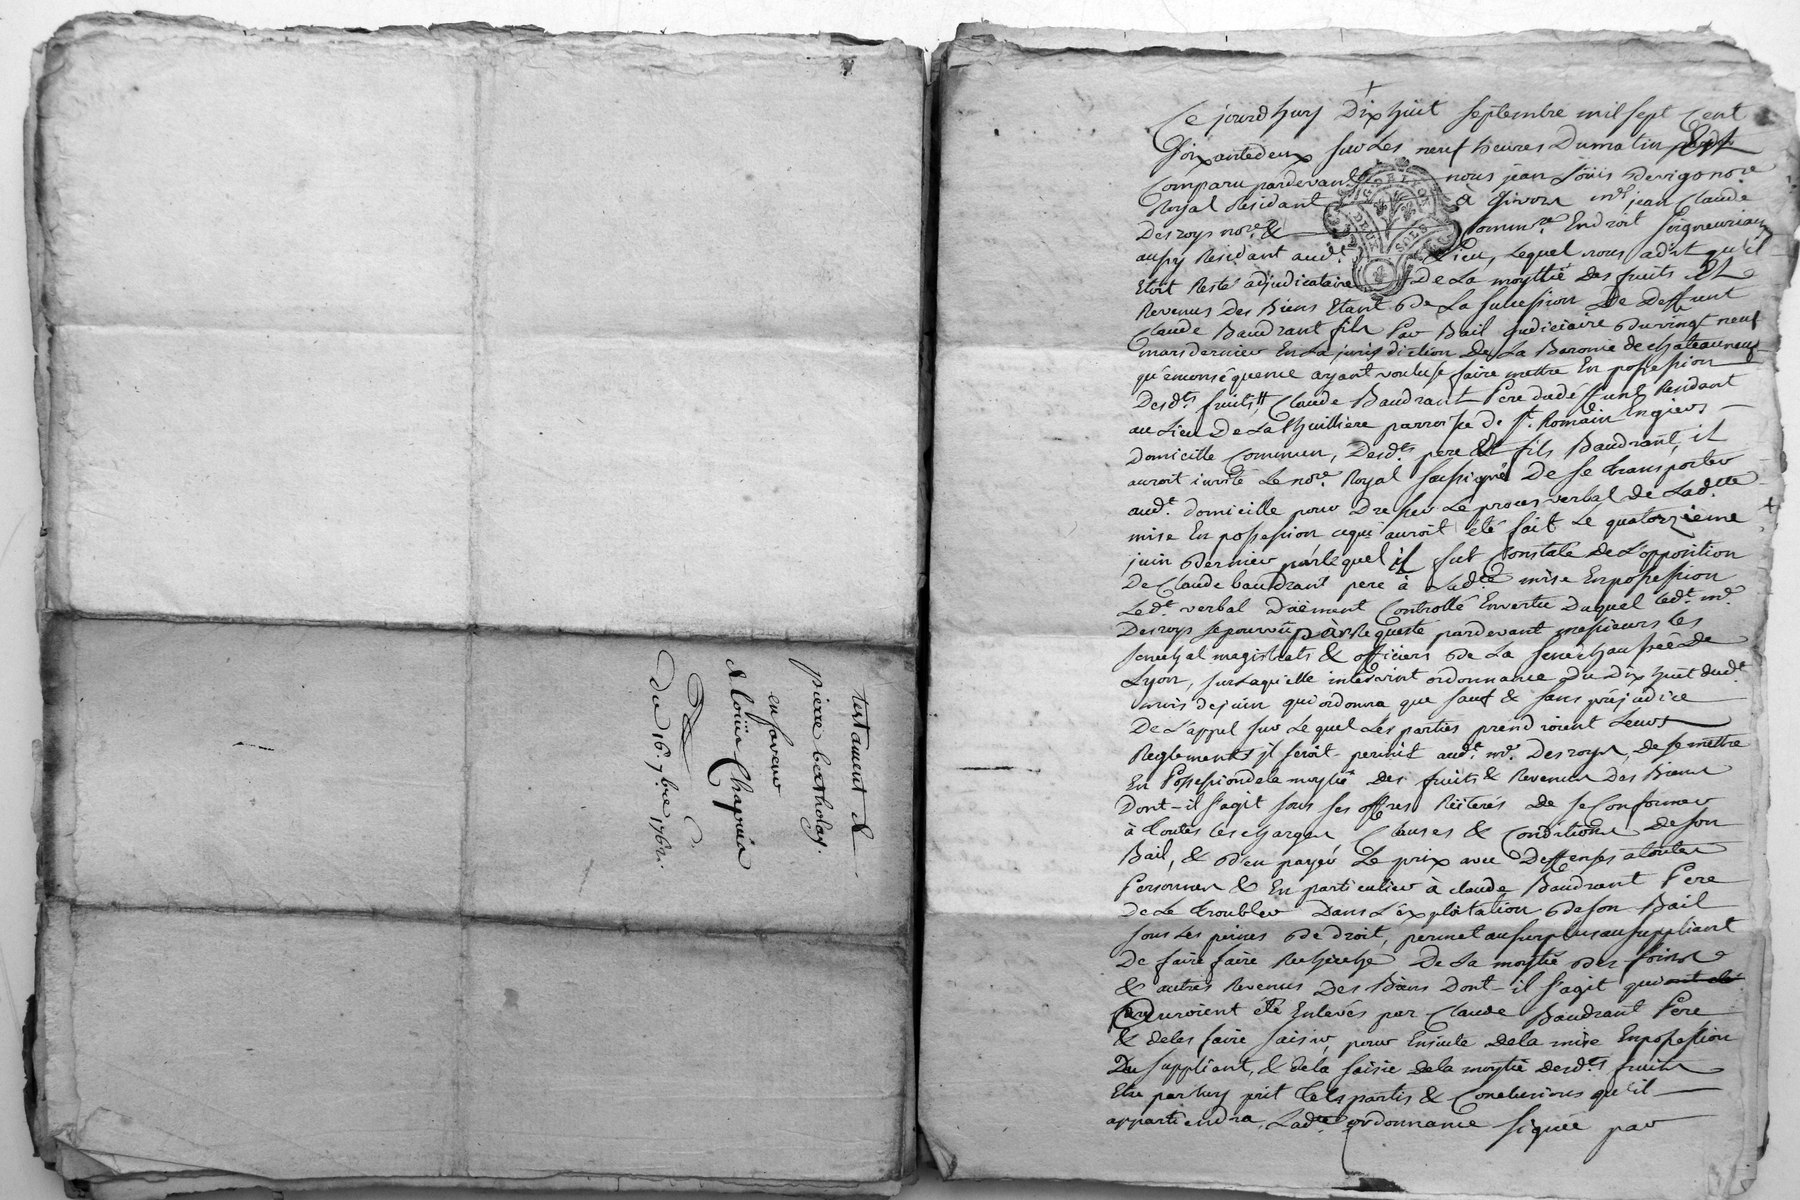 testament de
pierre bertholay.
en faveur
de loüise Chapuia
du 16e 7bre 1762.
Ce jourd'huy Dix huit septembre mil sept Cent
soixantedeux sur Les neuf heures Du matin Est
Comparu pardevant nous jean Loüis devigo nore
Royal Residant à Givors me jean Claude
Desroys nore & Commre En droit seigneuriaux
aussy Residant audt Lieu, Lequel nous a dit qu'il
Etoit Resté adjudicataire De La moytié des fruits Et
Revenus Des Biens Etant de La succession De Deffunt
Claude Baudrant fils Par Bail judiciaire du vingt neuf
mars dernier En La jurisdiction De La Baronie de chateauneuf
qu'en conséquence ayant voulu se faire mettre En possession
Desdts fruits, Claude Baudrant Pere du déffunt Residant
au Lieu De La Thuilliere parroisse de St Romain En giers
Domicille Commun, Desdts pere & fils Baudrant, il
auroit invité Le nore Royal soussigné De se transporter
audt domicille pour Dresser Le proces verbal de Ladtte
mise En possession cequi auroit été fait Le quatorzieme
juin dernier par lequel il fut Constaté De L'opposition
De Claude baudrant pere à Ladte mise En possession
Ledt verbal Düement Controllé En vertu Duquel Ledt me
Desroys se pourvût par Requeste pardevant messieurs Les
senechal magistrats & officiers de La senechaussée De
Lyon, sur Laquelle intervint ordonnance du Dix huit dudt
mois de juin qui ordonna que sauf & sans préjudice
De L'appel sur Lequel Les parties prendroient Leurs
Reglements il seroit permit audt me Desroys, de se mettre
En Possession de la moytié Des fruits & Revenus Des Biens
Dont-il s'agit sous ses offres Reiterés de se Conformer
à toutes les charges Clauses & Conditions de son
Bail, & d'en payer Le prix avec Deffenses à toutes
Personnes & En particulier à claude Baudrant Pere
de Le troubler Dans L'exploitation de son Bail
sous Les peines de droit, permet au surplus au suppliant
De faire faire Recherche De La moytié des foins
& autres Revenus Des Biens Dont-il s'agit qui
auroient été Enlevés par Claude Baudrant Pere
& de les faire saisir, pour Ensuite de la mise En possession
Du suppliant, & de la saisie de la moytié desdts fruits
Etre par luy prit tels partis & Conclusions qu'il
appartiendra, Ladte ordonnance signée par